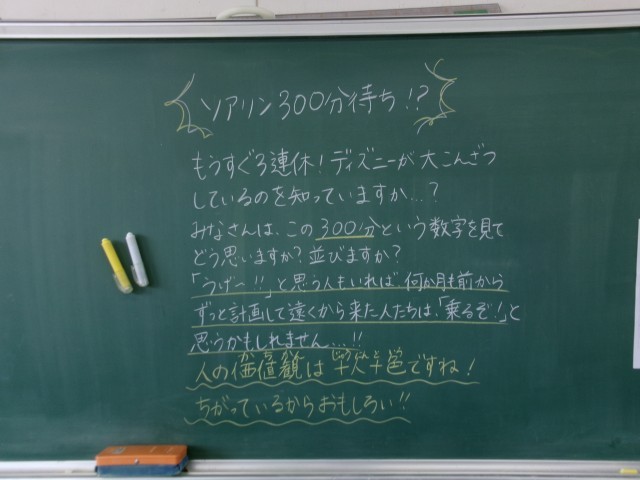 ソアリン300分待ち!?
もうすぐ3連休!ディズニーが大こんざつ
しているのを知っていますか…?
みなさんは、この300分という数字を見て
どう思いますか?並びますか?
「うげ〜!!」と思う人もいれば、何か月も前から
ずっと計画して遠くから来た人たちは、「乗るぞ!」と
思うかもしれません…!!
かちかん じゅうにんといろ
人の価値観は十人十色ですね!
ちがっているからおもしろい!!